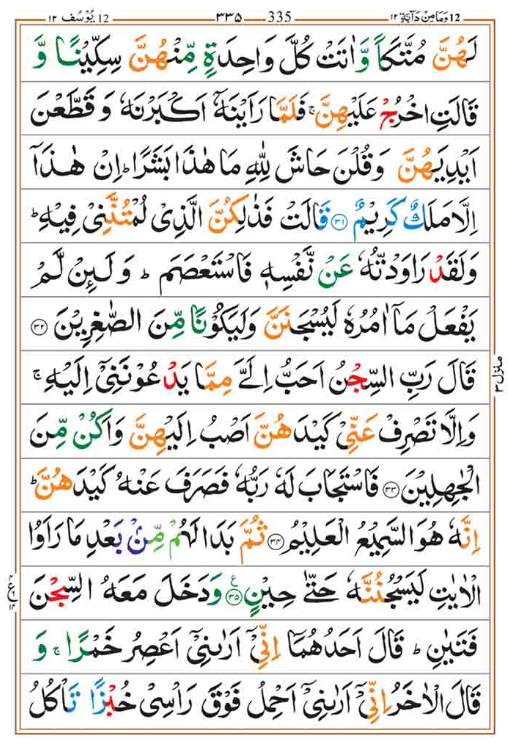 12 وَمَا مِنْ دَآبَّةٍ ١٢ 335 ٣٣٥ 12 يُوْسُف ١٢
لَهُنَّ مُتَّكَاً وَّاٰتَتْ كُلَّ وَاحِدَةٍ مِّنْهُنَّ سِكِّيْنًا وَّ
قَالَتِ اخْرُجْ عَلَيْهِنَّ ۚ فَلَمَّا رَاَيْنَهٗٓ اَكْبَرْنَهٗ وَ قَطَّعْنَ
اَيْدِيَهُنَّ وَقُلْنَ حَاشَ لِلّٰهِ مَا هٰذَا بَشَرًا ؕ اِنْ هٰذَاۤ
اِلَّا مَلَكٌ كَرِيْمٌ ﴿۳۱﴾ قَالَتْ فَذٰلِكُنَّ الَّذِىْ لُمْتُنَّنِىْ فِيْهِ ؕ
وَلَقَدْ رَاوَدْتُّهٗ عَنْ نَّفْسِهٖ فَاسْتَعْصَمَ ؕ وَ لَـئِنْ لَّمْ
يَفْعَلْ مَاۤ اٰمُرُهٗ لَيُسْجَنَنَّ وَلَيَكُوْنًا مِّنَ الصّٰغِرِيْنَ ﴿۳۲﴾
قَالَ رَبِّ السِّجْنُ اَحَبُّ اِلَىَّ مِمَّا يَدْعُوْنَنِىْۤ اِلَيْهِ ۚ
وَاِلَّا تَصْرِفْ عَنِّىْ كَيْدَهُنَّ اَصْبُ اِلَيْهِنَّ وَاَكُنْ مِّنَ
الْجٰهِلِيْنَ ﴿۳۳﴾ فَاسْتَجَابَ لَهٗ رَبُّهٗ فَصَرَفَ عَنْهُ كَيْدَهُنَّ ؕ
اِنَّهٗ هُوَ السَّمِيْعُ الْعَلِيْمُ ﴿۳۴﴾ ثُمَّ بَدَا لَهُمْ مِّنْۢ بَعْدِ مَا رَاَوُا
الْاٰيٰتِ لَيَسْجُنُنَّهٗ حَتّٰى حِيْنٍ ﴿۳۵﴾ وَدَخَلَ مَعَهُ السِّجْنَ
فَتَيٰنِ ؕ قَالَ اَحَدُهُمَاۤ اِنِّىْۤ اَرٰٮنِىْۤ اَعْصِرُ خَمْرًا ۚ وَ
قَالَ الْاٰخَرُ اِنِّىْۤ اَرٰٮنِىْۤ اَحْمِلُ فَوْقَ رَاْسِىْ خُبْزًا تَاْكُلُ
منزل ۳